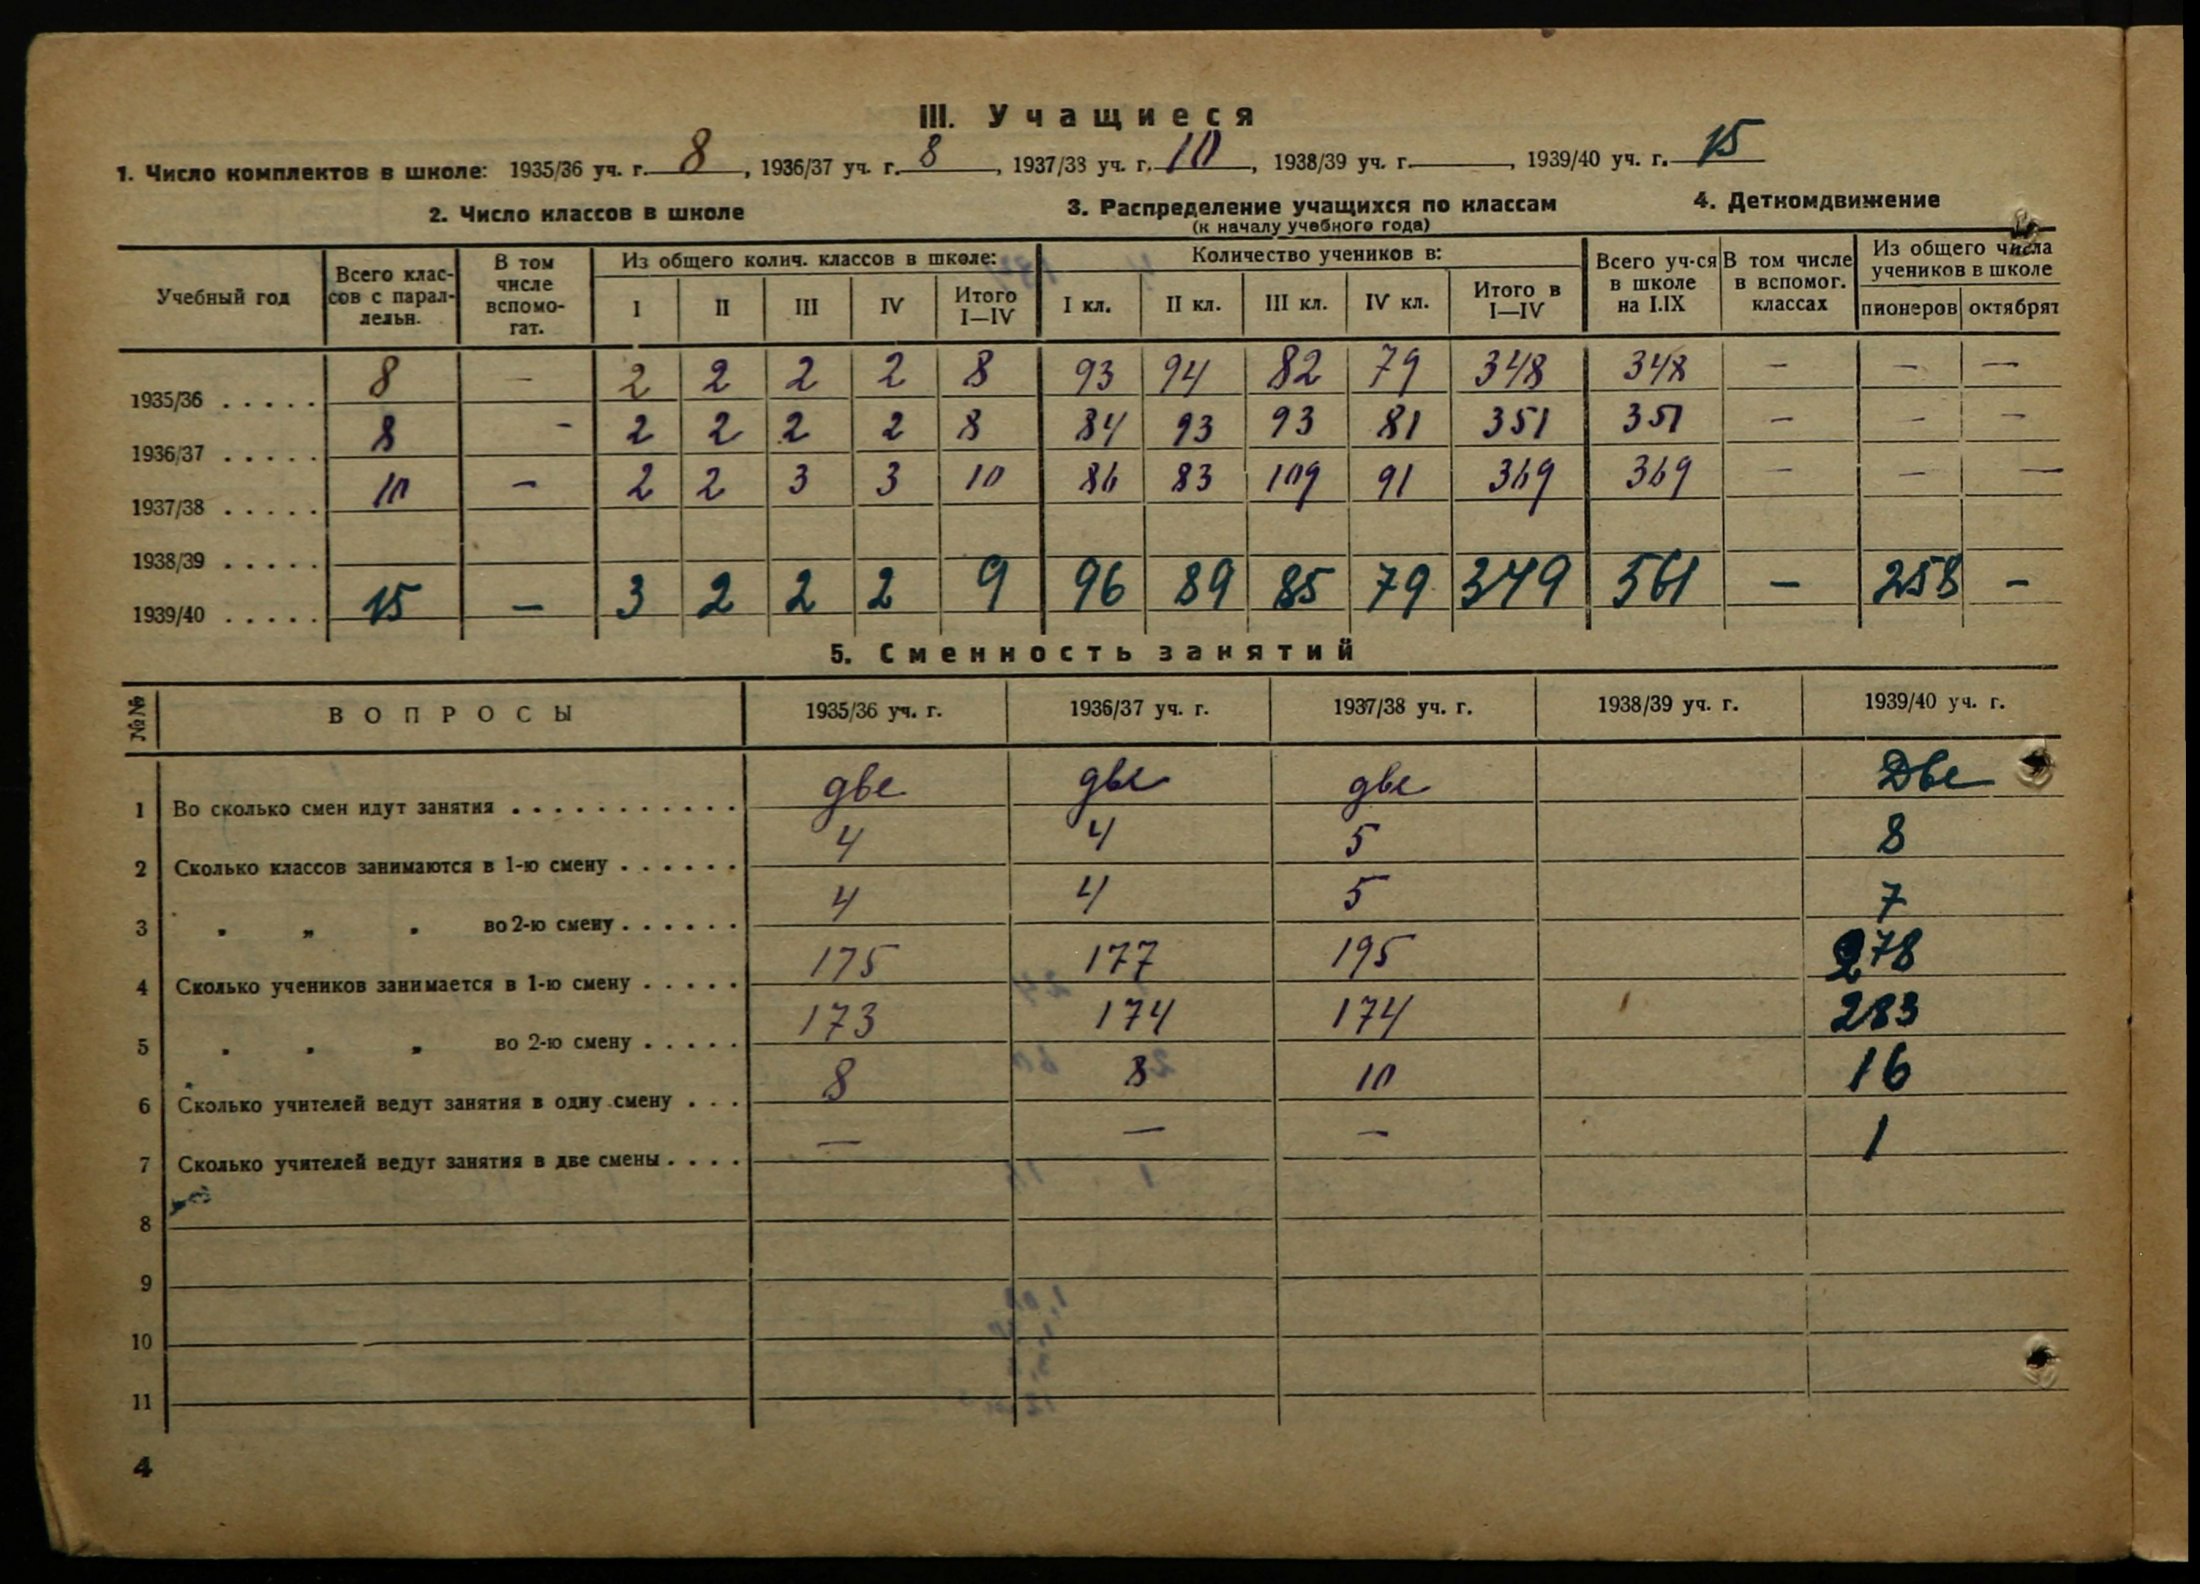 III. Учащиеся
1. Число комплектов в школе: 1935/36 уч. г. 8, 1936/37 уч. г. 8, 1937/38 уч. г. 10, 1938/39 уч. г. , 1939/40 уч. г. 15
2. Число классов в школе
3. Распределение учащихся по классам
(к началу учебного года)
4. Деткомдвижение
Учебный год
Всего клас-
сов с парал-
лельн.
В том
числе
вспомо-
гат.
Из общего колич. классов в школе:
I II III IV Итого
I—IV
Количество учеников в:
I кл. II кл. III кл. IV кл. Итого в
I—IV
Всего уч-ся
в школе
на I.IX
В том числе
в вспомог.
классах
Из общего числа
учеников в школе
пионеров октябрят
1935/36 . . . . . 8 — 2 2 2 2 8 93 94 82 79 348 348 — — —
1936/37 . . . . . 8 - 2 2 2 2 8 84 93 93 81 351 351 — - —
1937/38 . . . . . 10 — 2 2 3 3 10 86 83 109 91 369 369 — — —
1938/39 . . . . .
1939/40 . . . . . 15 — 3 2 2 2 9 96 89 85 79 349 561 — 258 —
5. Сменность занятий
№№ ВОПРОСЫ 1935/36 уч. г. 1936/37 уч. г. 1937/38 уч. г. 1938/39 уч. г. 1939/40 уч. г.
1 Во сколько смен идут занятия . . . . . . . . . . . две две две Две
2 Сколько классов занимаются в 1-ю смену . . . . . . 4 4 5 8
3 „ „ „ во 2-ю смену . . . . . . 4 4 5 7
4 Сколько учеников занимается в 1-ю смену . . . . . 175 177 195 278
5 „ „ „ во 2-ю смену . . . . . 173 174 174 283
6 Сколько учителей ведут занятия в одну смену . . . 8 8 10 16
7 Сколько учителей ведут занятия в две смены . . . . — — — 1
8
9
10
11
4